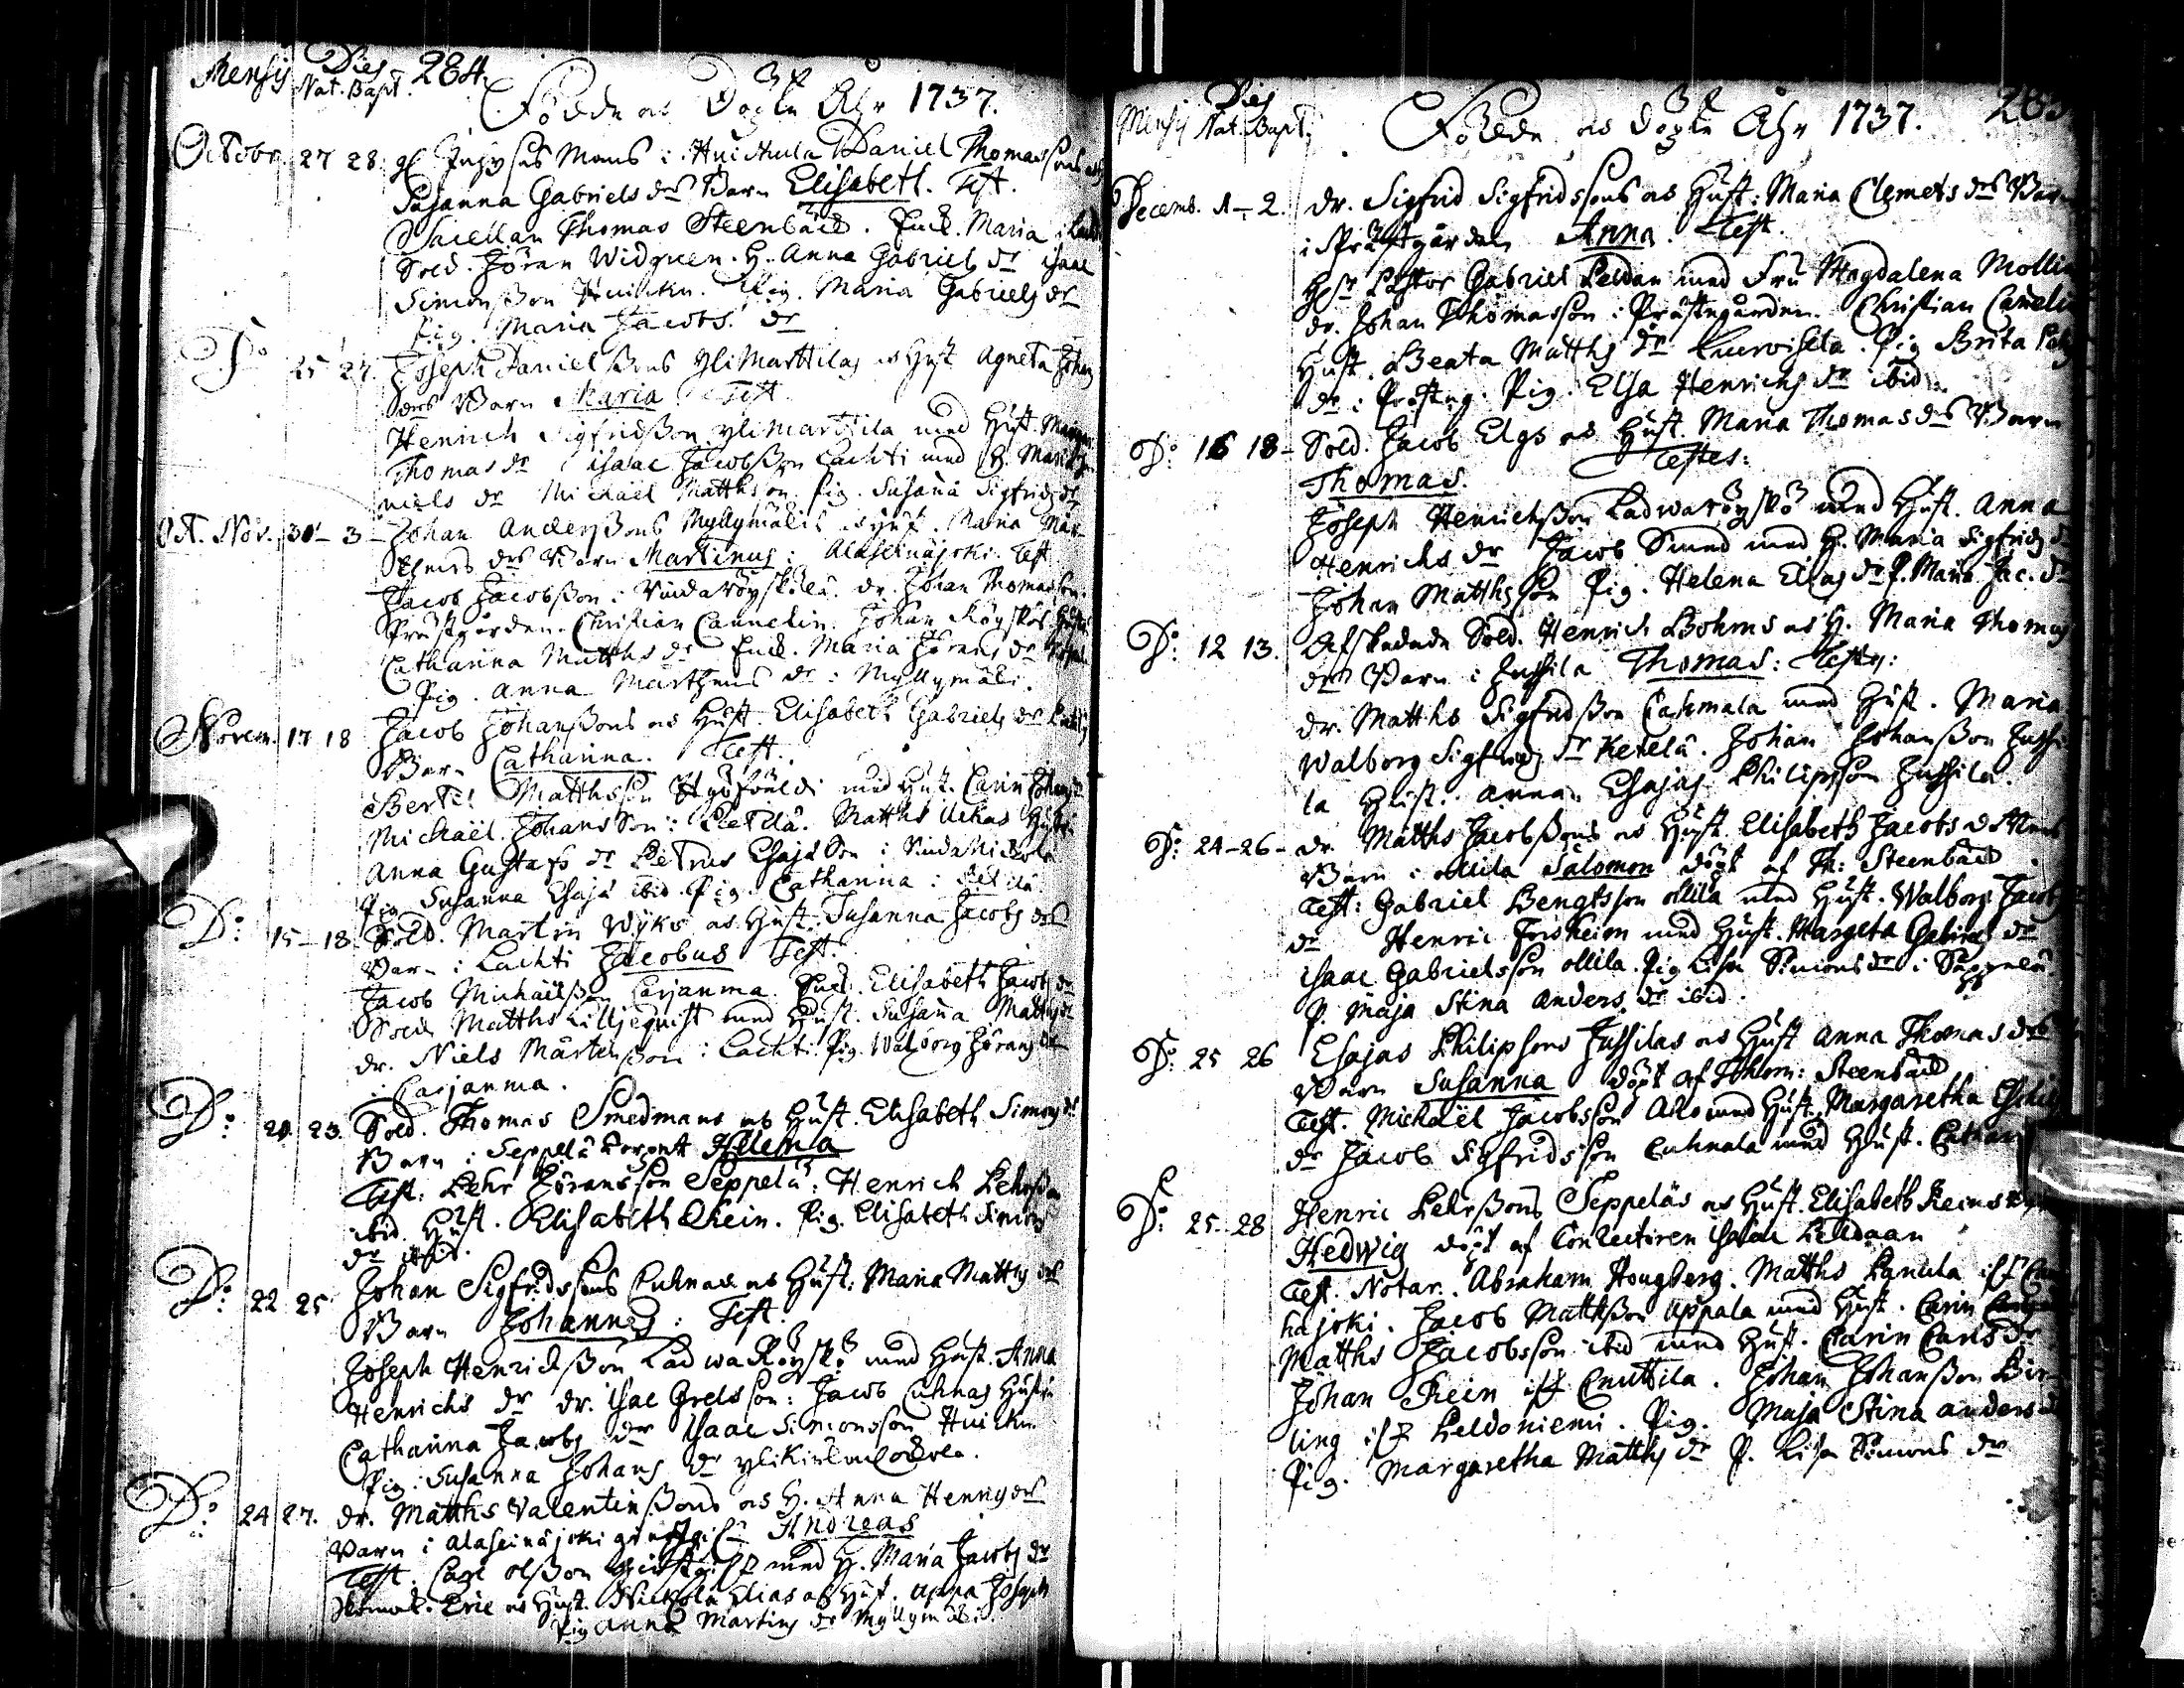 Mensis Dies Nat. Bapt. 284.
Födde och Döpte Åhr 1737.
Octobr. 27 28. Mons i Huichula Daniel Thomassons och
Susanna Gabriels dr Barn Elisabeth. Test.
Sacellan Thomas Steenbäck. Enck. Maria i
Sold. Jöran Widgren. H. Anna Gabriels dr Isaac
Simonsson Huicku. Pig. Maria Gabriels dr
Pig. Maria Jacobs dr
Do 25 27. Joseph Danielssons Ylimarttilas och Hust Agneta Johans
drs Barn Maria Test
Henrich Sigfridsson Ylimarttila med Hust.
Thomas dr Isaac Jacobsson Lachti med H. Maria
niels dr Michaël Matthsson. Pig. Susana Sigfrids dr
Oct. Nov. 30 - 3 - Johan Anderssons Myllymäkis och Hust. Maria Mår-
thens drs Barn Martinus: Alaseinäjoki. Test
Jacob Jacobsson i dr. Johan Thomasson
Prästgården. Christian Cannelin. Johan Röyskös Hustru
Catharina Matths dr Enck. Maria Jörans dr
Pig. Anna Mårthens dr i Myllymäki.
Novem. 17 18 Jacob Johanssons och Hust. Elisabeth Gabriels dr
Barn Catharina. Test.
Bertil Matthsson med Hust. Carin Johans dr
Michaël Johansson i Matths Hustru
Anna Gustafs dr Petrus Esajæson i
Pig Susanna Esajæ ibid. Pig. Catharina i
Do: 15 - 18. Sold. Martin Wijks och Hust. Susanna Jacobs drs
Barn i Lachti Jacobus Test.
Jacob Michaëlsson Carjanma. Enck. Elisabeth Jacobs dr
Sold Matths Lilljequist med Hust. Susana Matths dr
dr. Niels Mårtensson i Lachti. Pig. Walborg Jörans dr
i Carjanma.
Do: 20. 23. Sold. Thomas Smedmans och Hust. Elisabeth Simons drs
Barn i Seppelä torpet Helena
Test: Pehr Jöransson Seppelä: Henrich Pehrsson
ibid Hust. Elisabeth Rhein. Pig. Elisabeth Simons
dr ibid.
Do: 22 25 Johan Sigfridssons Cuhnas och Hust. Maria Matths drs
Barn Johannes: Test.
Joseph Henrichsson Ladwa Röyskö med Hust. Anna
Henrichs dr dr. Isac Grelsson: Jacob Cuhnas Hustru
Catharina Jacobs dr Isaac Simonsson Huicku
Pig: Susanna Johans dr
Do: 24 27. dr. Matths Valentinssons och H. Anna Henrigs drs
Barn i Alaseinäjoki Andreas
Test. Carl Olsson med H. Maria Jacobs dr
Eric och Hust. Elias och Hust. Anna Josephs
Pig Anna Martins dr Myllymäki.
Mensis Dies Nat. Bapt. 285
Födde och döpte Åhr 1737.
Decemb. 1 - 2. dr. Sigfrid Sigfridssons och Hust: Maria Clemets drs Barn
i Prästgården Anna. Test.
Hr Pastor Gabriel Peldan med Fru Magdalena Mollin
dr. Johan Thomasson i Prästegården. Christian Cannelin
Hust. Beata Matths dr Pig Brita
dr i Prästeg. Pig. Elsa Henrichs dr ibid.
Do: 16 18 - Sold. Jacob Elgs och Hust Maria Thomas drs Barn
Thomas. Testes:
Joseph Henrichsson Ladwaröyskö med Hust. Anna
Henrichs dr Jacob Smed med H. Maria Sigfrids dr
Johan Matthsson Pig. Helena Elias dr P. Maria Jac. dr
Do: 12 13. Afskedade Sold. Henrich Bohms och H. Maria Thomas
drs Barn i Jussila Thomas: Testes:
dr. Matths Sigfridsson med Hust. Maria
Walborg Sigfrids dr Ketelä. Johan Johansson Jussi-
la Hust. Anna. Esajas Philipsson Jussila.
Do: 24 - 26 - dr. Matths Jacobssons och Hust. Elisabeth Jacobs drs
Barn i Ollila Salomon döpt af Th: Steenbäck
Test: Gabriel Bengtsson Ollila med Hust. Walborg Jacobs
dr Henric Forsheim med Hust. Margeta Gabriels dr
Isaac Gabrielsson Ollila. Pig Lisa Simons dr i Seppelä
P. Maja Stina Anders dr ibid.
Do: 25 26 Esajas Philipsons Jussilas och Hust Anna Thomas drs
Barn Susanna döpt af Thom: Steenbäck
Test. Michaël Jacobsson Alo med Hust. Margaretha
dr Jacob Sigfridsson Cuhnala med Hust. Catharina
Do: 25 - 28 Henric Pehrssons Seppeläs och Hust. Elisabeth Reins
Hedwig döpt af Conrectoren Isaac Peldaan
Test. Notar. Abraham Hougberg. Matths Panula
hajoki. Jacob Matthsson Uppala med Hust. Carin
Matths Jacobsson ibid med Hust. Carin Carls dr
Johan Rein Cnuttila. Johan Johansson Bir-
ling Peldoniemi. Pig. Maja Stina Anders dr
Pig. Margaretha Matths dr P. Lisa Simons dr